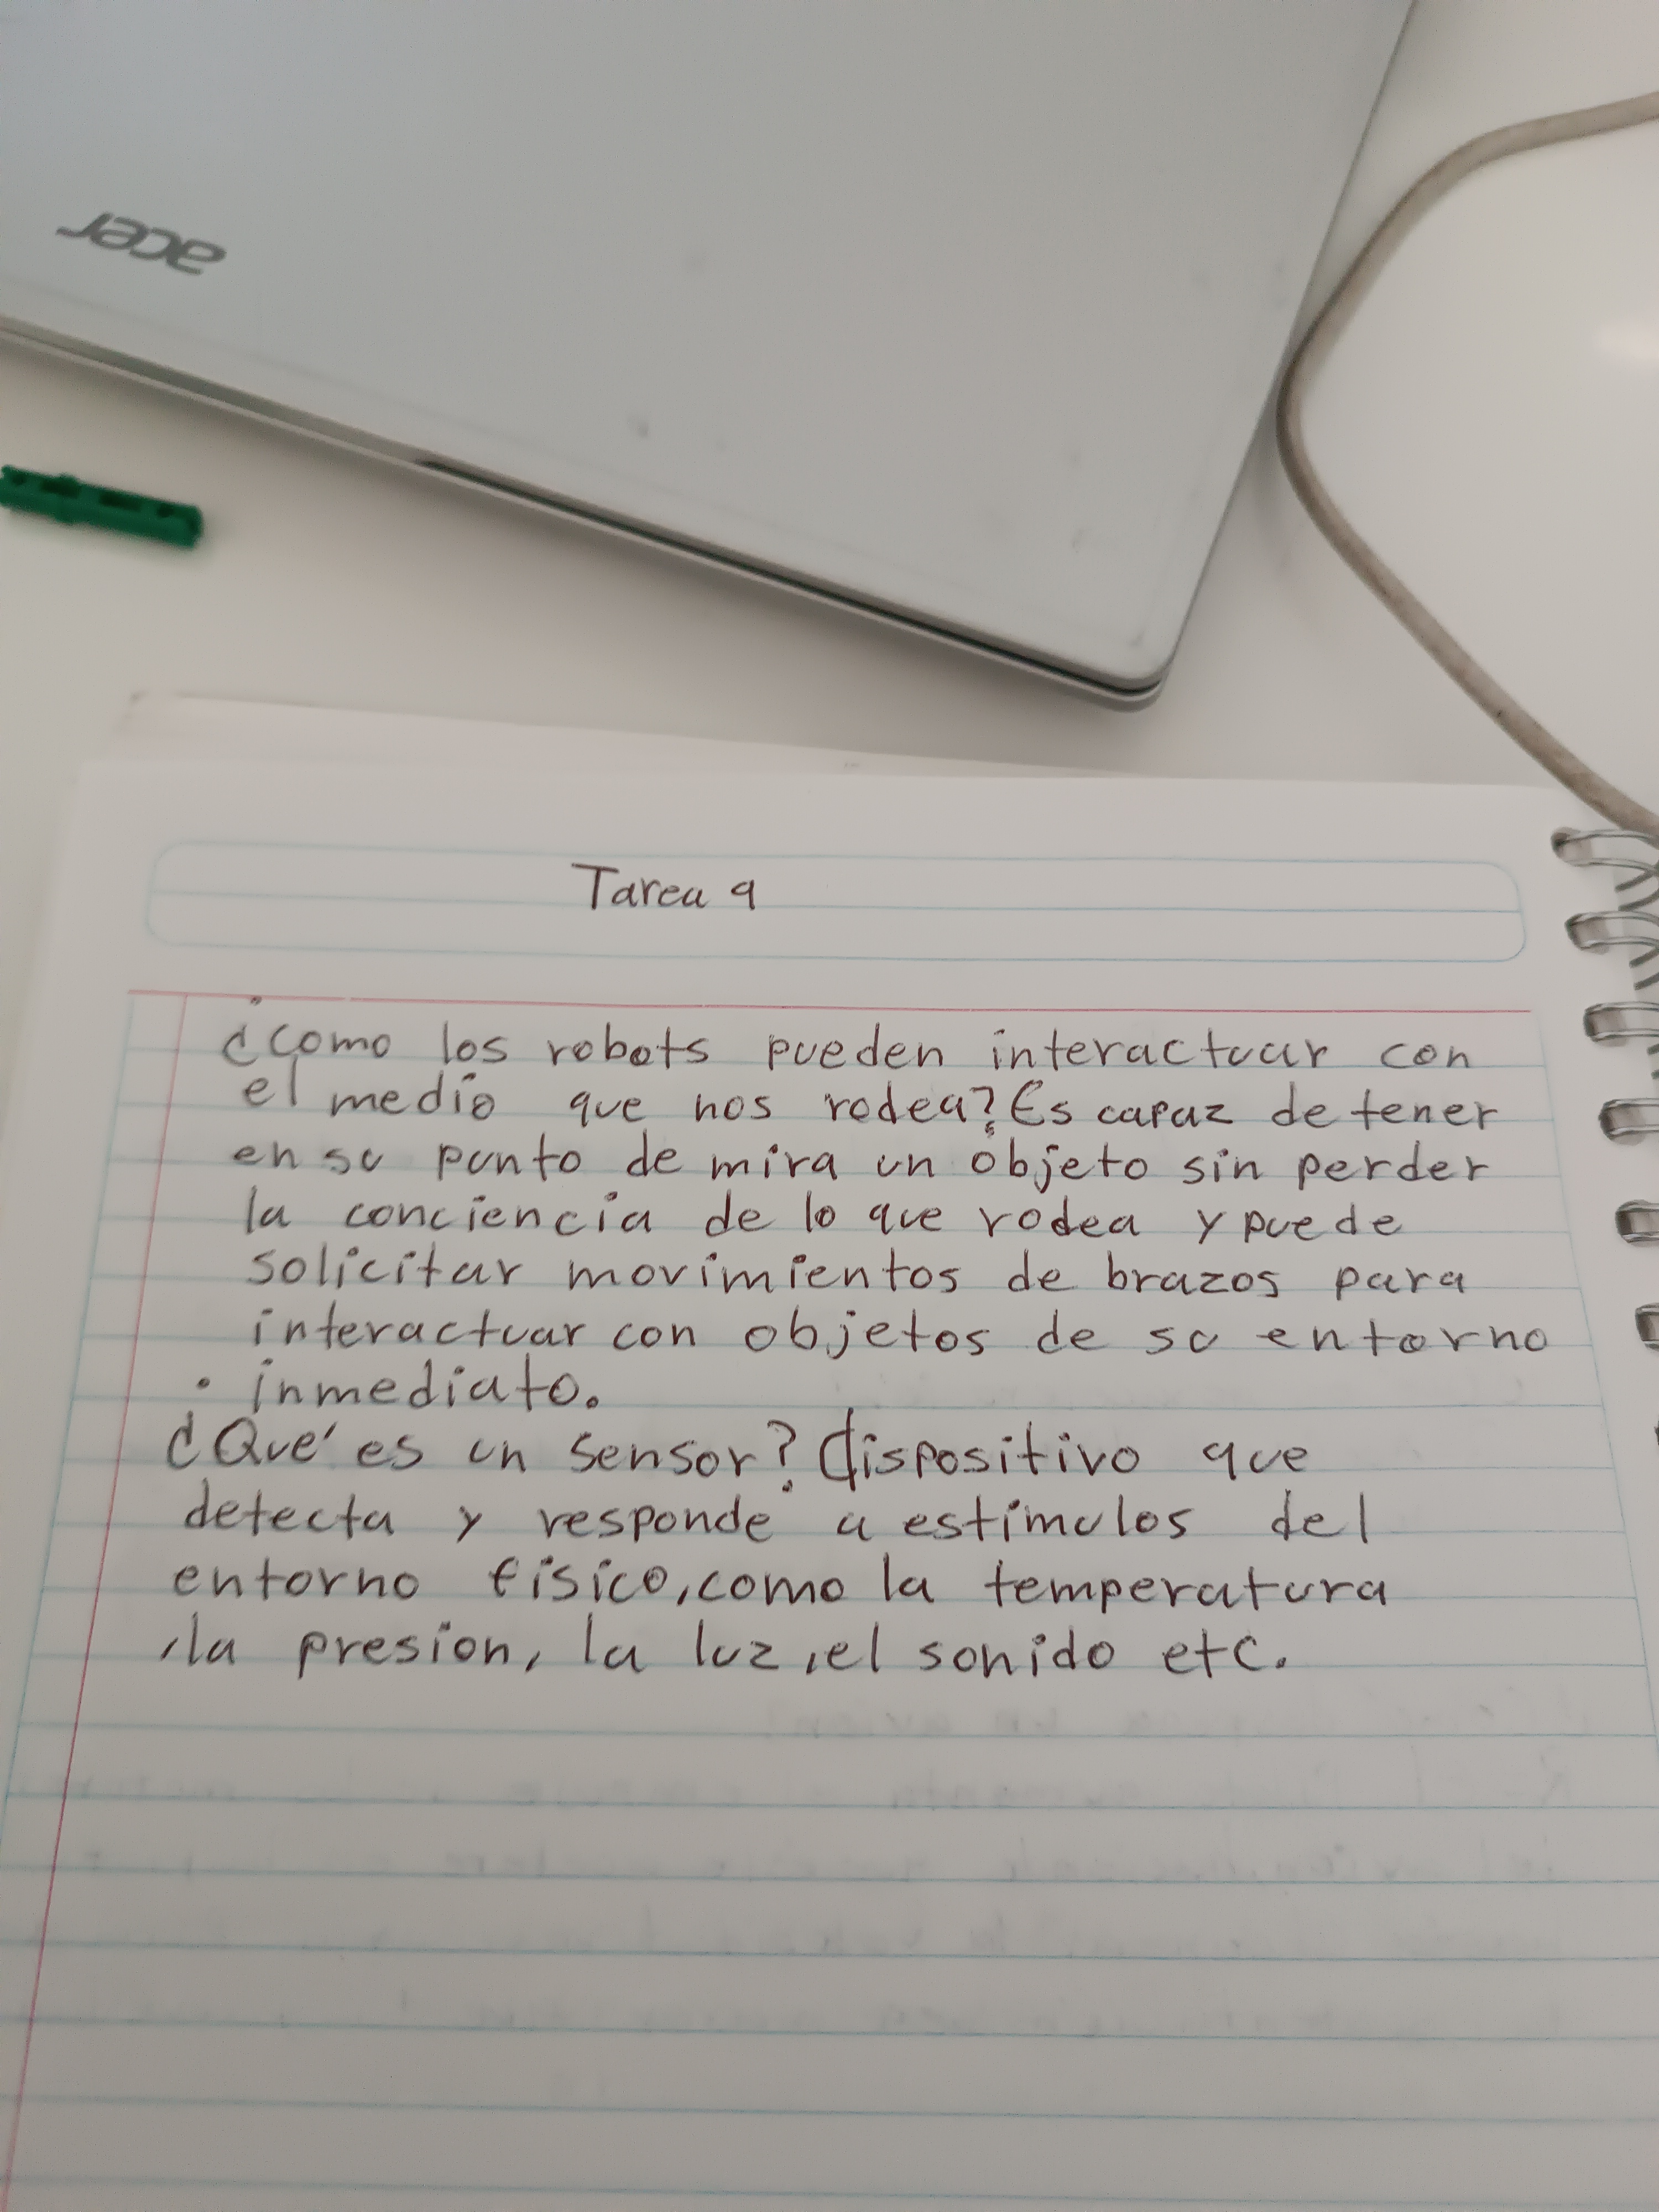 acer
Tarea 9
¿como los robots pueden interactuar con
el medio que nos rodea? Es capaz de tener
en su punto de mira un objeto sin perder
la conciencia de lo que rodea y puede
solicitar movimientos de brazos para
interactuar con objetos de su entorno
• inmediato.
¿Qué es un sensor? dispositivo que
detecta y responde a estimulos del
entorno fisico, como la temperatura
,la presion, la luz ,el sonido etc.